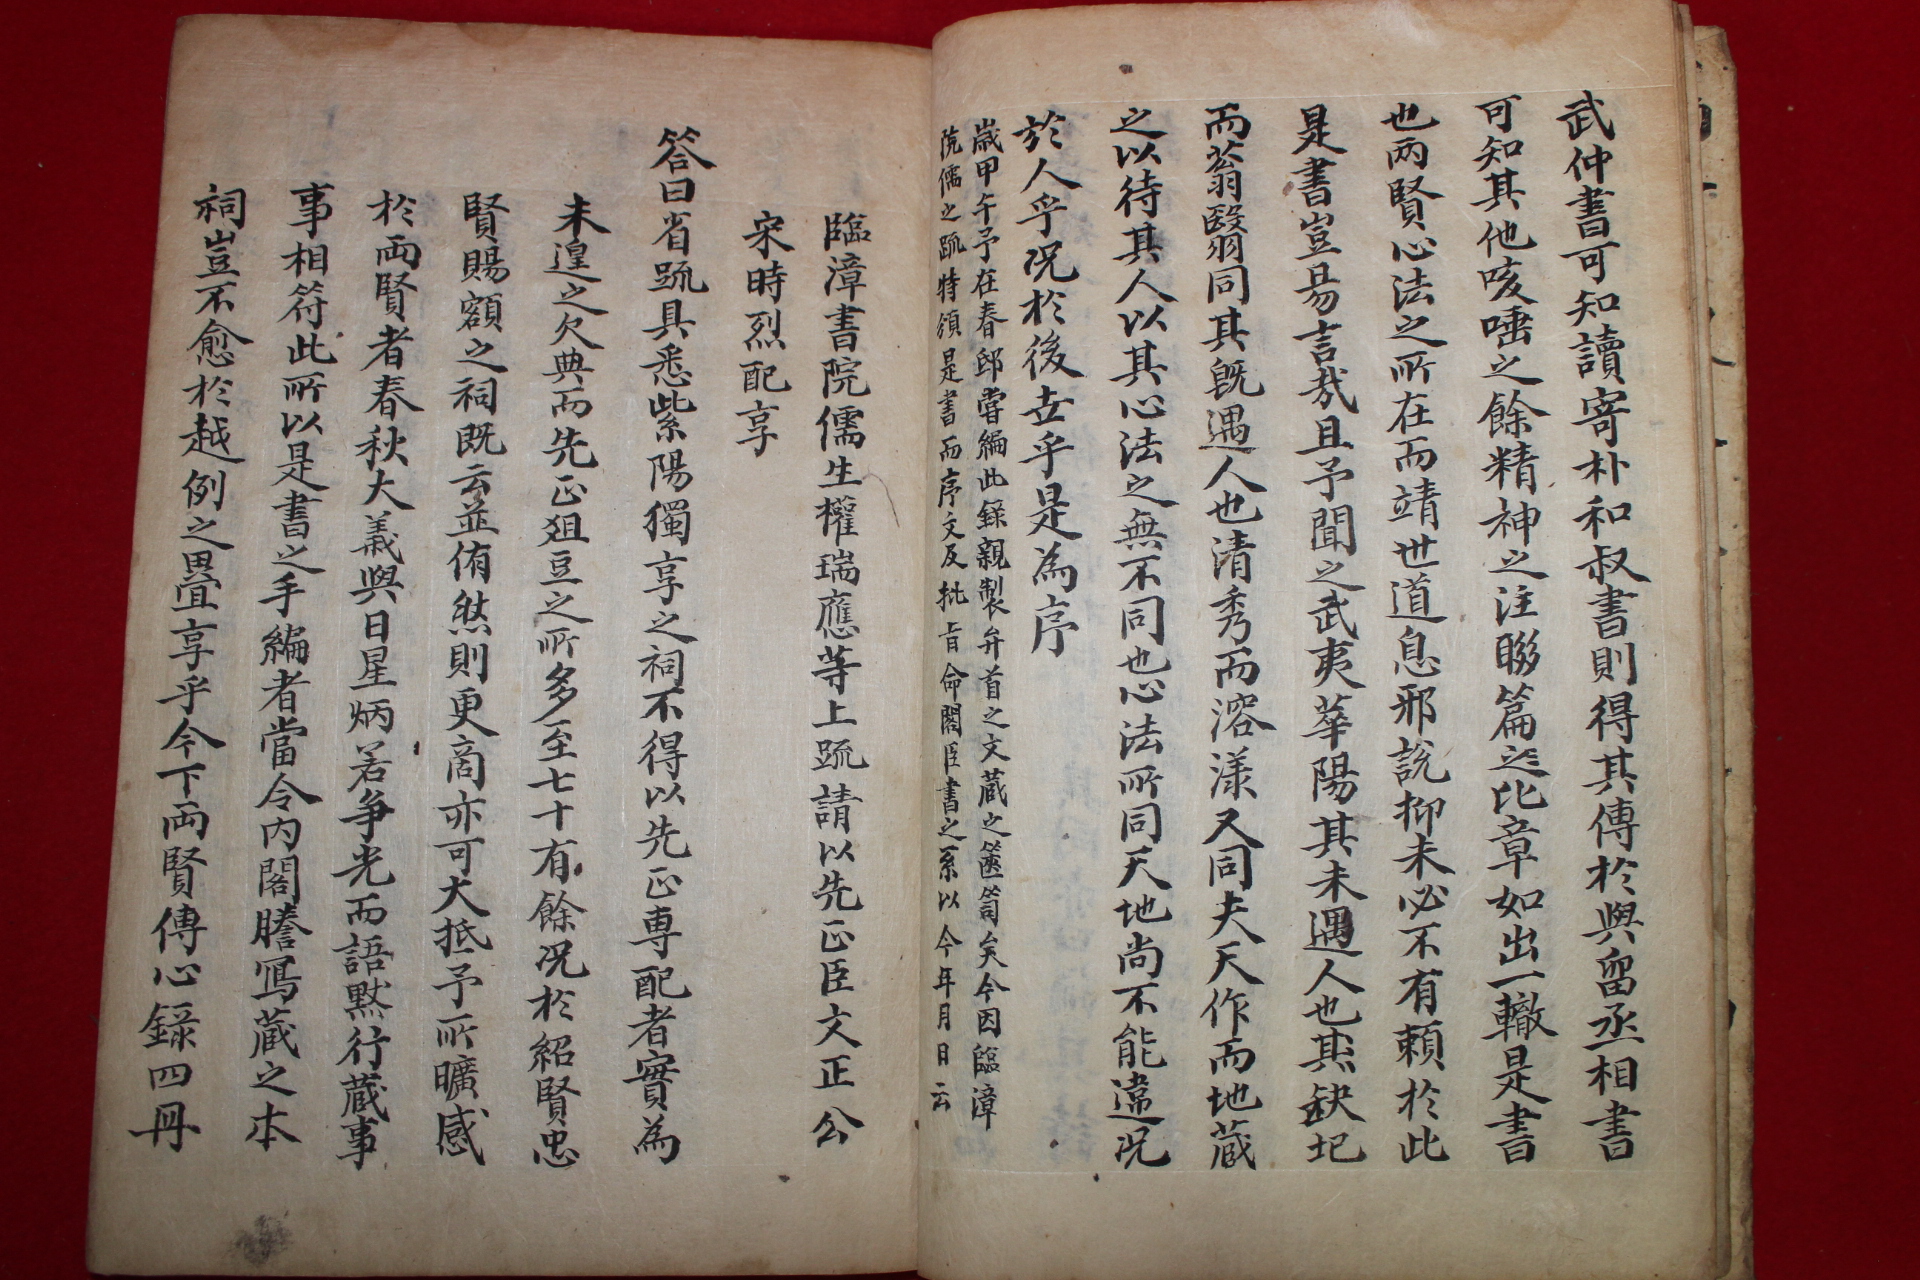 武仲書可知讀寄朴和叔書則得其傳於與留丞相書
可知其他咳唾之餘精神之注聯篇迄比章如出一轍是書
也兩賢心法之所在而靖世道息邪說抑未必不有賴於此
是書豈昜言哉且予聞之武夷華陽其未遇人也其缺圮
而蓊翳同其旣遇人也清秀而溶漾又同夫天作而地藏
之以待其人以其心法之無不同也心法所同天地尚不能違況
於人乎況於後世乎是為序
歲甲午予在春邸嘗編此錄親製弁首之文藏之篋笥矣今因臨漳
院儒之疏特頒是書而序文及批旨命閣臣書之系以今年月日云
臨漳書院儒生權瑞應等上疏請以先正臣文正公
宋時烈配享
答曰省疏具悉紫陽獨享之祠不得以先正専配者實為
未遑之欠典而先正俎豆之所多至七十有餘況於紹賢忠
賢賜額之祠既云並侑然則更商亦可大抵予所曠感
於兩賢者春秋大義與日星炳若爭光而語默行藏事
事相符此所以是書之手編者當令內閣謄寫藏之本
祠豈不愈於越例之疊享乎今下兩賢傳心錄四冊